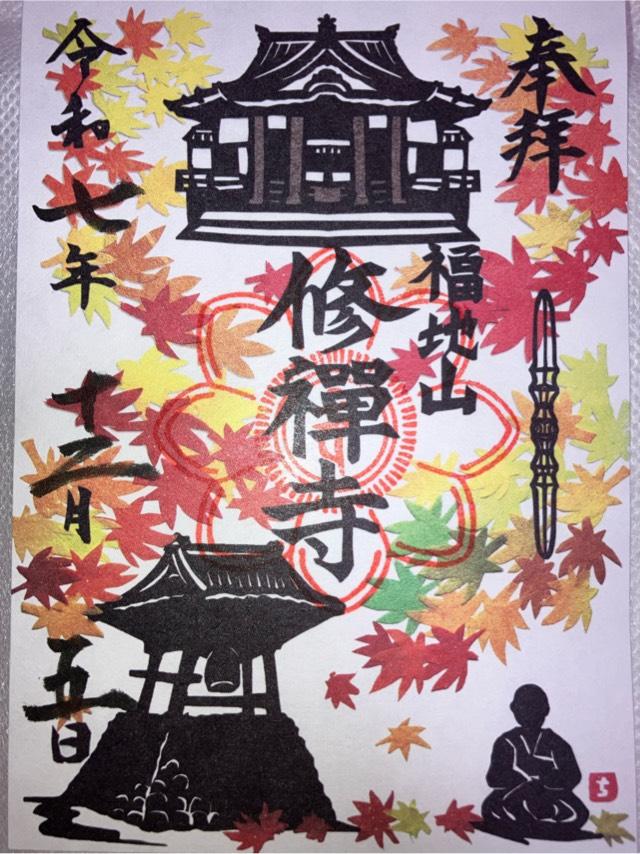 奉拝
福地山
修禪寺
令和七年十二月五日
ち